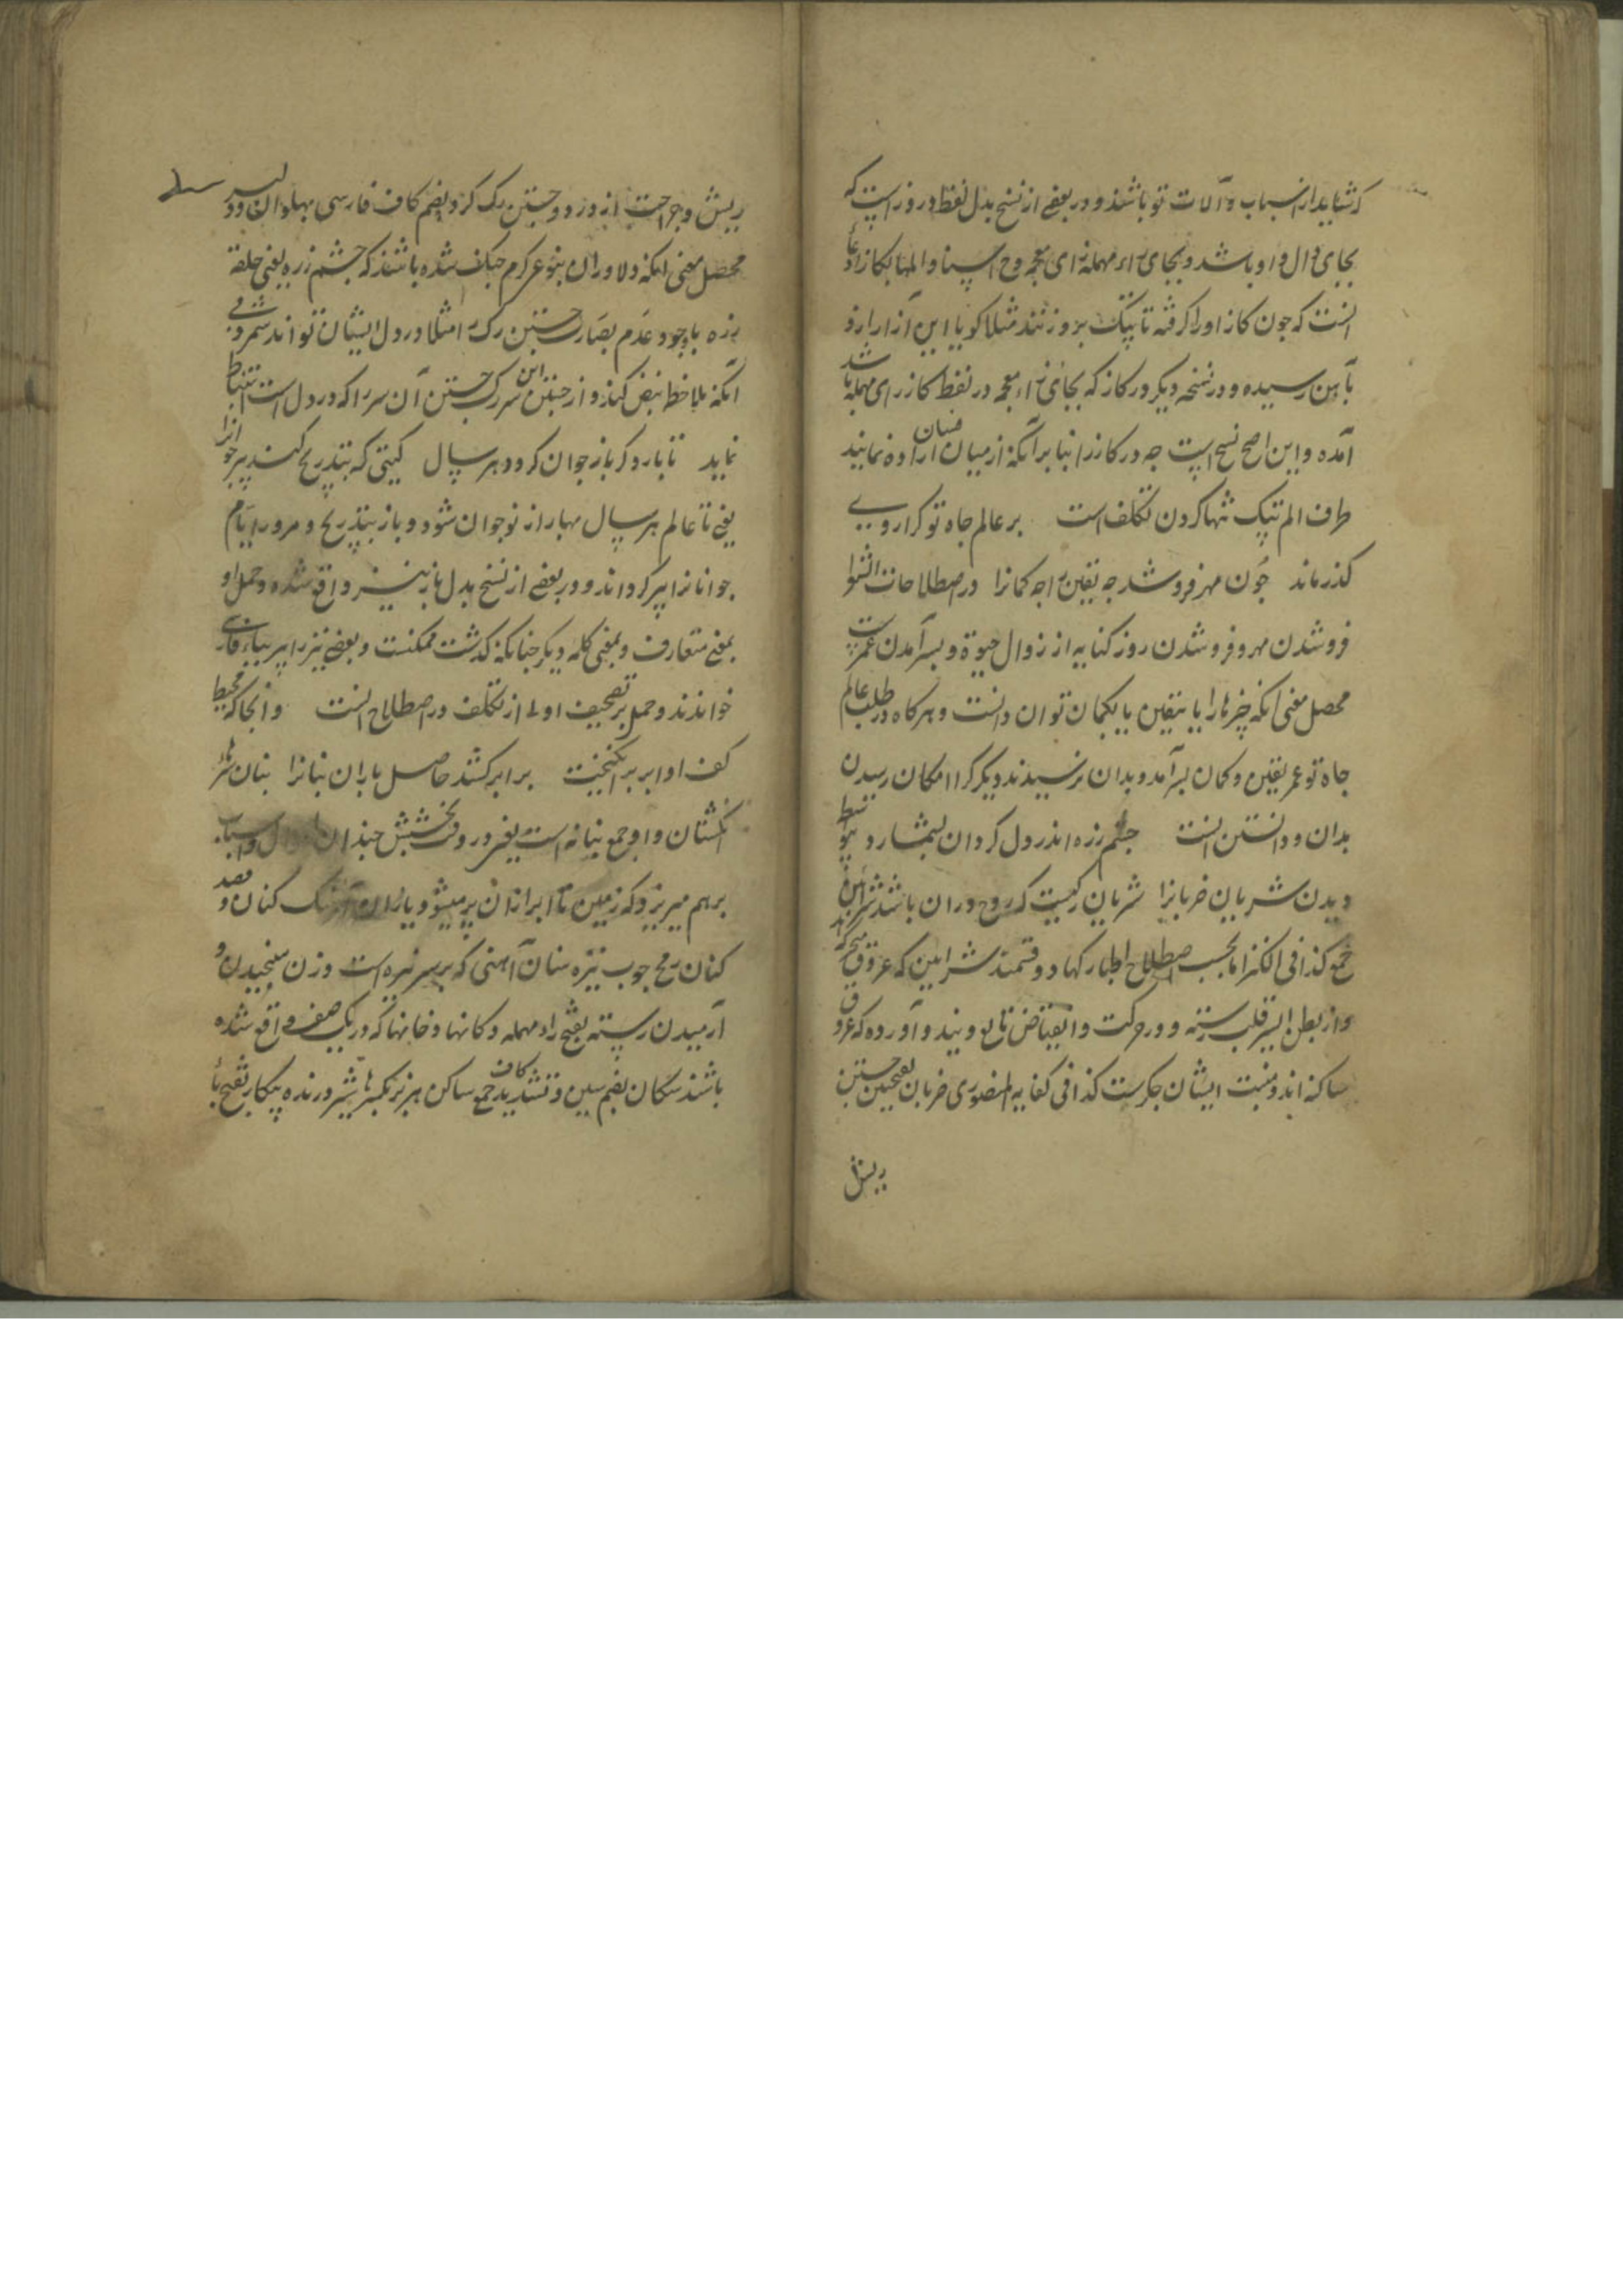 که شاید از اسباب و آلات تو باشند و در بعضی از نسخ بدل لفظ در روز است که
بجای دال واو باشد و بجای راء مهمله زای معجمه و ح
انست که چون کاز او را گرفته تا پتک برو زنند مثلا کویا این آزار از و
بآهن رسیده و در نسخه دیگر در کاز که بجای زاء معجمه در لفظ کاز رای مهمله باشد
آمده و این اصح نسخ است چه در کاز را بنا بر آنکه از میان میان اراده نمایند
طرف الم پتک تنها کردن تکلف است بر عالم جاه تو کرا روی
کذر ماند چون مهر فرو شد چه یقین را چه کمانرا در اصطلاحات الشعرا
فرو شدن مهر و فرو شدن روز کنایه از زوال حیوة و بسر آمدن عمرست
محصل معنی آنکه چیزها را یا بیقین یا بکمان توان دانست و هر کاه در طلب عالم
جاه تو عمر یقین و کمان بسر آمد و بدان نرسیدند دیکر کرا امکان رسیدن
بدان و دانستن انست چشم زره اندر دل کردان بشمارد بی واسطه
دیدن شریان ضربانرا شریان رکیست که روح دران باشد شرائین
جمع کذا فی الکنز اما بحسب اصطلاح اطبا رکها دو قسمند شرایین که عروق متحرکه اند
و از بطن ایسر قلب رسته و در حرکت و انقباض تابع ویند و آورده که عروق
ساکنه اند و منبت ایشان جکرست کذا فی کفایه المنصوری ضربان بفتحین جستن
ریش
ریش و جراحت از درد و جستن رک کرد بضم کاف فارسی پهلوان و دلیر
محصل معنی آنکه دلاوران بنوعی کرم جنک شده باشند که چشم زره یعنی حلقه
زره باوجود عدم بصارت جستن رک را مثلا در دل ایشان تواند شمرد یعنی
آنکه ملاحظا نبض کند و از جستن این سررک جستن آن سر را که در دل است استنباط
نماید تا بار دکر باز جوان کردد هر سال کیتی که بتدریج کند پیر جوانرا
یعنی تا عالم هر سال بهار از نو جوان شود و باز بتدریج و مرور ایام
جوانانرا پیر کرداند و در بعضی از نسخ بدل باز نیز واقع شده و حمل او
بمعنی متعارف و بمعنی کله دیکر چنانکه کذشت ممکنست و بعضی نیز را پیر بباء فارسی
خوانند و حمل بر تصحیف اولی از تکلف در اصطلاح انست و آنجا که محیط
کف او ابر برانکیخت بر ابر کشد حاصل باران بنانرا بنان سرهای
انکشتان و او جمع بنانه است یعنی در وقت بخشش چندان مال و اسباب
برهم میریزد که زمین تا ابر ازان پر میشود یازان آهنک کنان و قصد
کنان رمح چوب نیزه سنان آهنی که بر سر نیزه است وزن سنجیدن و
آرمیدن رسته بفتح راء مهمله دکانها و خانها که در یک صف واقع شده
باشند سکان بضم سین و تشدید کاف جمع ساکن هژبر بکسر ها شیر درنده پیکار بفتح با